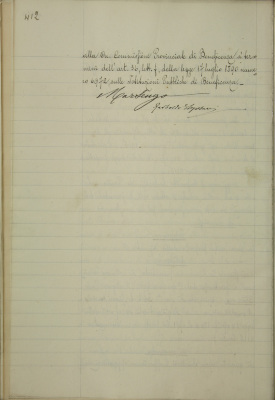 412
alla On. Commissione Provinciale di Beneficenza a ter-
mini dell'art. 36, lett. f, della legge 17 luglio 1890 nume-
ro 6972 sulle Istituzioni Pubbliche di Beneficenza.